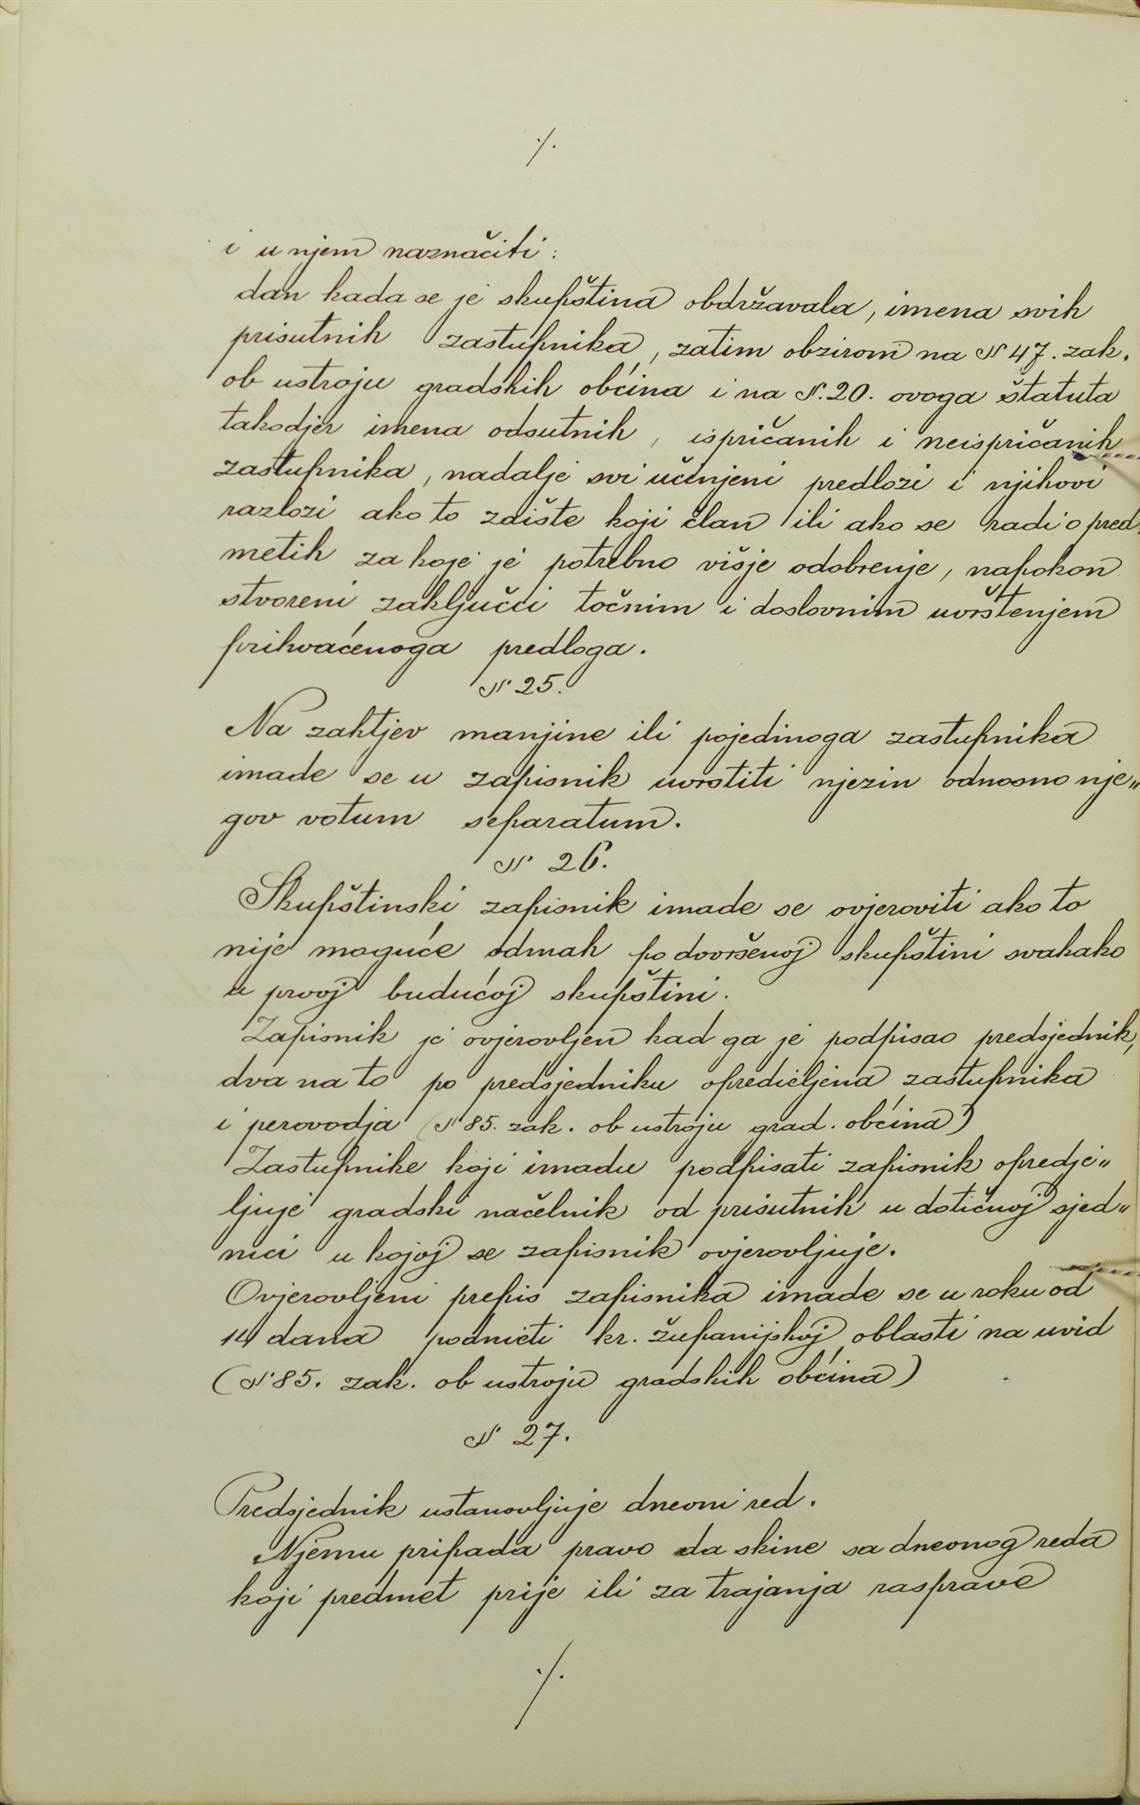 ./.
i u njem naznačiti:
dan kada se je skupština obdržavala, imena svih
prisutnih zastupnika, zatim obzirom na § 47. zak.
ob ustroju gradskih obćina i na §. 20. ovoga štatuta
takodjer imena odsutnih, ispričanih i neispričanih
zastupnika, nadalje svi učinjeni predlozi i njihovi
razlozi ako to zaište koji član ili ako se radi o pred„
metih za koje je potrebno višje odobrenje, napokon
stvoreni zaključci točnim i doslovnim uvrštenjem
prihvaćenoga predloga.
§ 25.
Na zahtjev manjine ili pojedinoga zastupnika
imade se u zapisnik uvrstiti njezin odnosno nje„
gov votum separatum.
§ 26.
Skupštinski zapisnik imade se ovjeroviti ako to
nije moguće odmah po dovršenoj skupštini svakako
u prvoj budućoj skupštini.
Zapisnik je ovjerovljen kad ga je podpisao predsjednik,
dva na to po predsjedniku opredieljena zastupnika
i perovodja (§ 85. zak. ob ustroju grad. obćina)
Zastupnike koji imadu podpisati zapisnik opredje„
ljuje gradski načelnik od prisutnih u dotičnoj sjed„
nici u kojoj se zapisnik ovjerovljuje.
Ovjerovljeni prepis zapisnika imade se u roku od
14 dana podnieti kr. županijskoj oblasti na uvid
(§ 85. zak. ob ustroju gradskih obćina)
§ 27.
Predsjednik ustanovljuje dnevni red.
Njemu pripada pravo da skine sa dnevnog reda
koji predmet prije ili za trajanja rasprave
./.